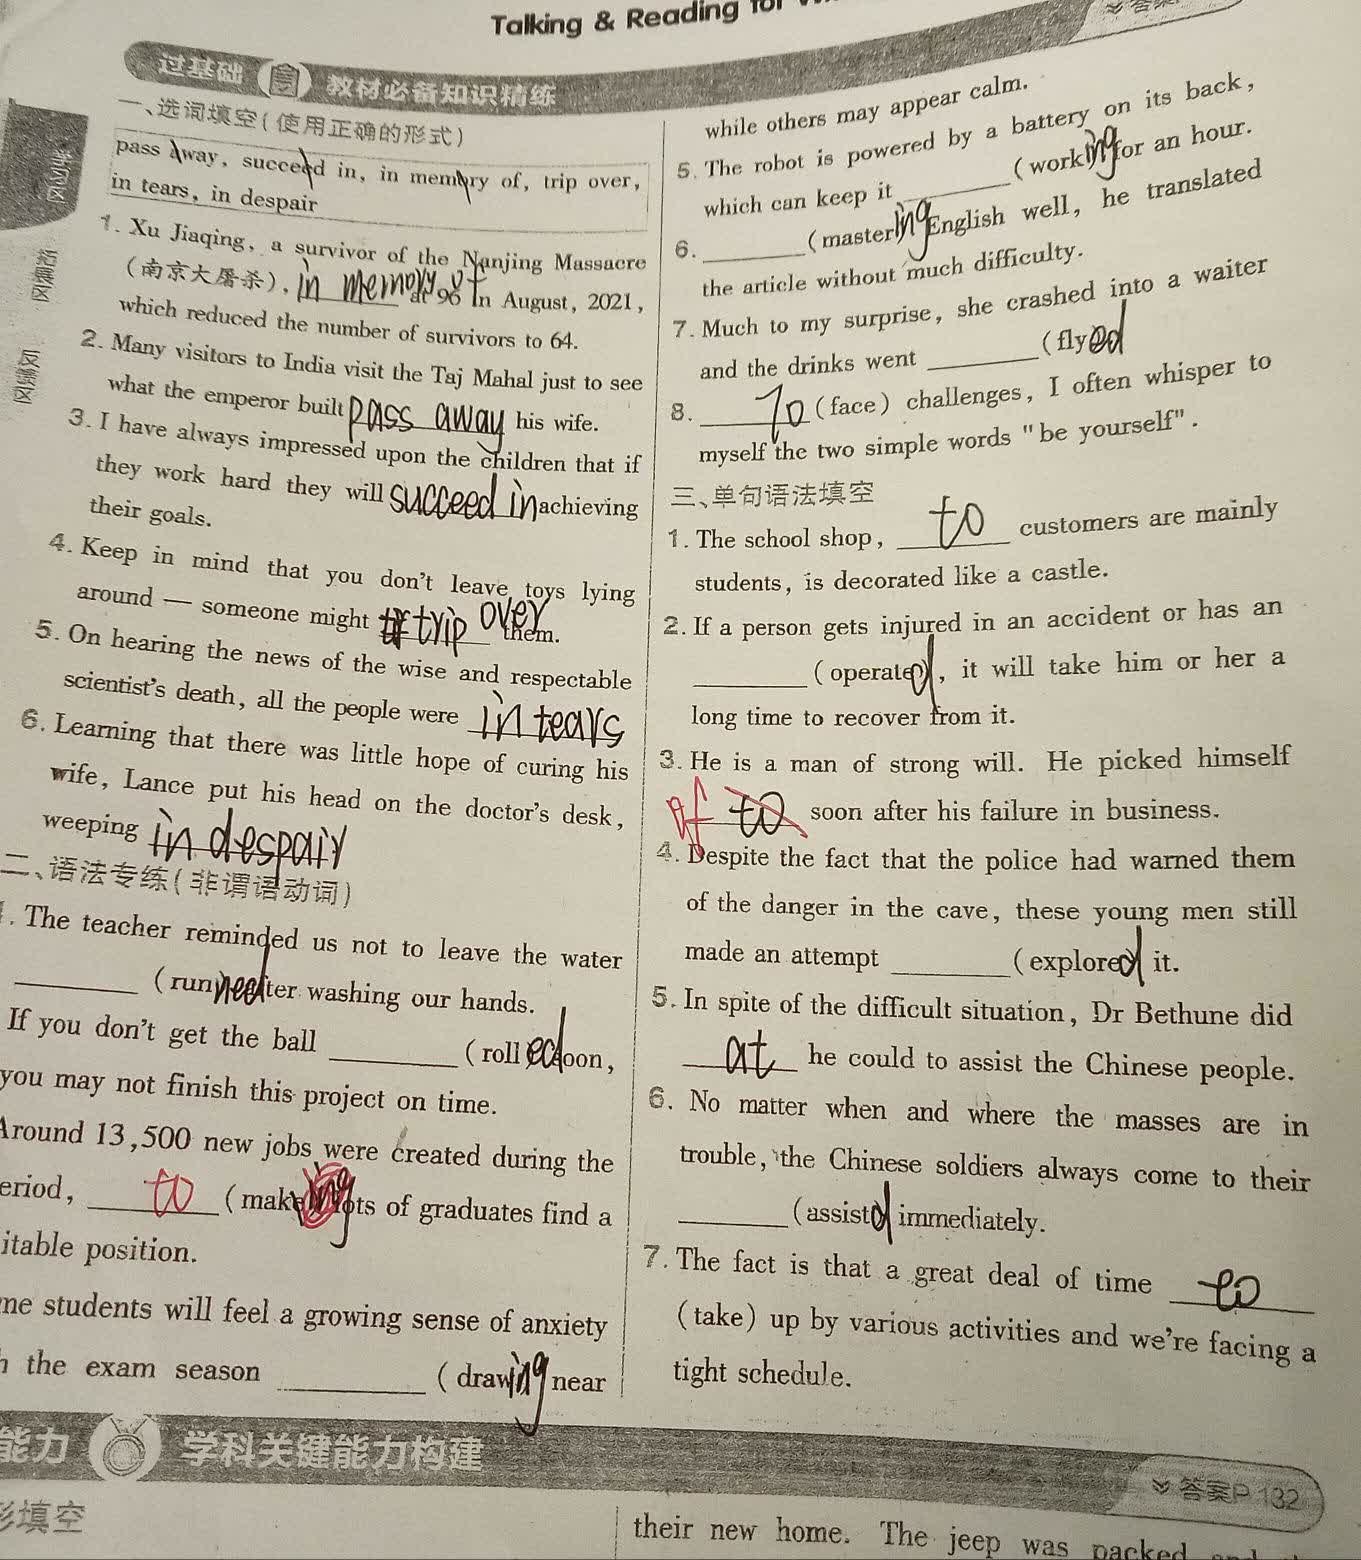 Talking & Reading for
过基础 教材必备知识精练
一、选词填空(使用正确的形式)
pass away, succeed in, in memory of, trip over,
in tears, in despair
1. Xu Jiaqing, a survivor of the Nanjing Massacre
(南京大屠杀), in memory of at 96 in August, 2021,
which reduced the number of survivors to 64.
2. Many visitors to India visit the Taj Mahal just to see
what the emperor built pass away his wife.
3. I have always impressed upon the children that if
they work hard they will succeed in achieving
their goals.
4. Keep in mind that you don't leave toys lying
around — someone might trip over them.
5. On hearing the news of the wise and respectable
scientist's death, all the people were in tears
6. Learning that there was little hope of curing his
wife, Lance put his head on the doctor's desk,
weeping in despair
二、语法专练(非谓语动词)
. The teacher reminded us not to leave the water
______ (run) need after washing our hands.
If you don't get the ball ______ (roll) ed soon,
you may not finish this project on time.
Around 13,500 new jobs were created during the
eriod, to (make) ing lots of graduates find a
itable position.
me students will feel a growing sense of anxiety
h the exam season ______ (draw) ing near
能力 学科关键能力构建
形填空
while others may appear calm.
5. The robot is powered by a battery on its back,
which can keep it ______ (work) ing for an hour.
6. ______ (master) ing English well, he translated
the article without much difficulty.
7. Much to my surprise, she crashed into a waiter
and the drinks went ______ (fly) ed
8. To (face) challenges, I often whisper to
myself the two simple words "be yourself".
三、单句语法填空
1. The school shop, to customers are mainly
students, is decorated like a castle.
2. If a person gets injured in an accident or has an
______ (operate) d, it will take him or her a
long time to recover from it.
3. He is a man of strong will. He picked himself
of to soon after his failure in business.
4. Despite the fact that the police had warned them
of the danger in the cave, these young men still
made an attempt ______ (explore) d it.
5. In spite of the difficult situation, Dr Bethune did
at he could to assist the Chinese people.
6. No matter when and where the masses are in
trouble, the Chinese soldiers always come to their
______ (assist) d immediately.
7. The fact is that a great deal of time to
(take) up by various activities and we're facing a
tight schedule.
答案P 132
their new home. The jeep was packed